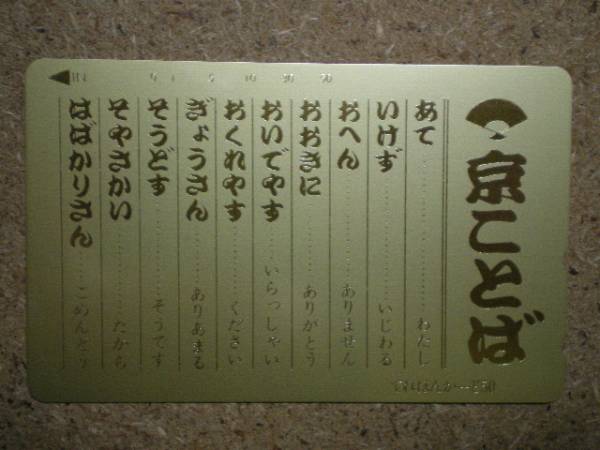 京ことば
あて……わたし
いけず……いじわる
おへん……ありません
おおきに……ありがとう
おいでやす……いらっしゃい
おくれやす……ください
ぎょうさん……ありあまる
そうどす……そうです
そやさかい……だから
はばかりさん……ごめんどう
50